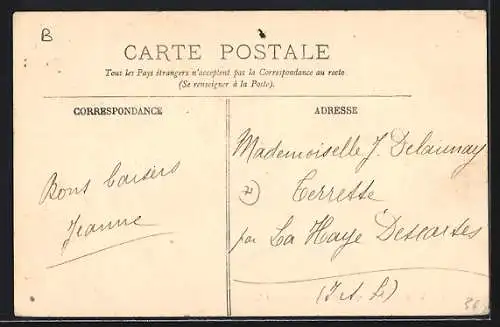 B
CARTE POSTALE
Tous les Pays étrangers n'acceptent pas la Correspondance au recto
(Se renseigner à la Poste).
CORRESPONDANCE
ADRESSE
Bons baisers
Jeanne
Mademoiselle J. Delaunay
Terresse
par La Haye Descartes
(I et L)